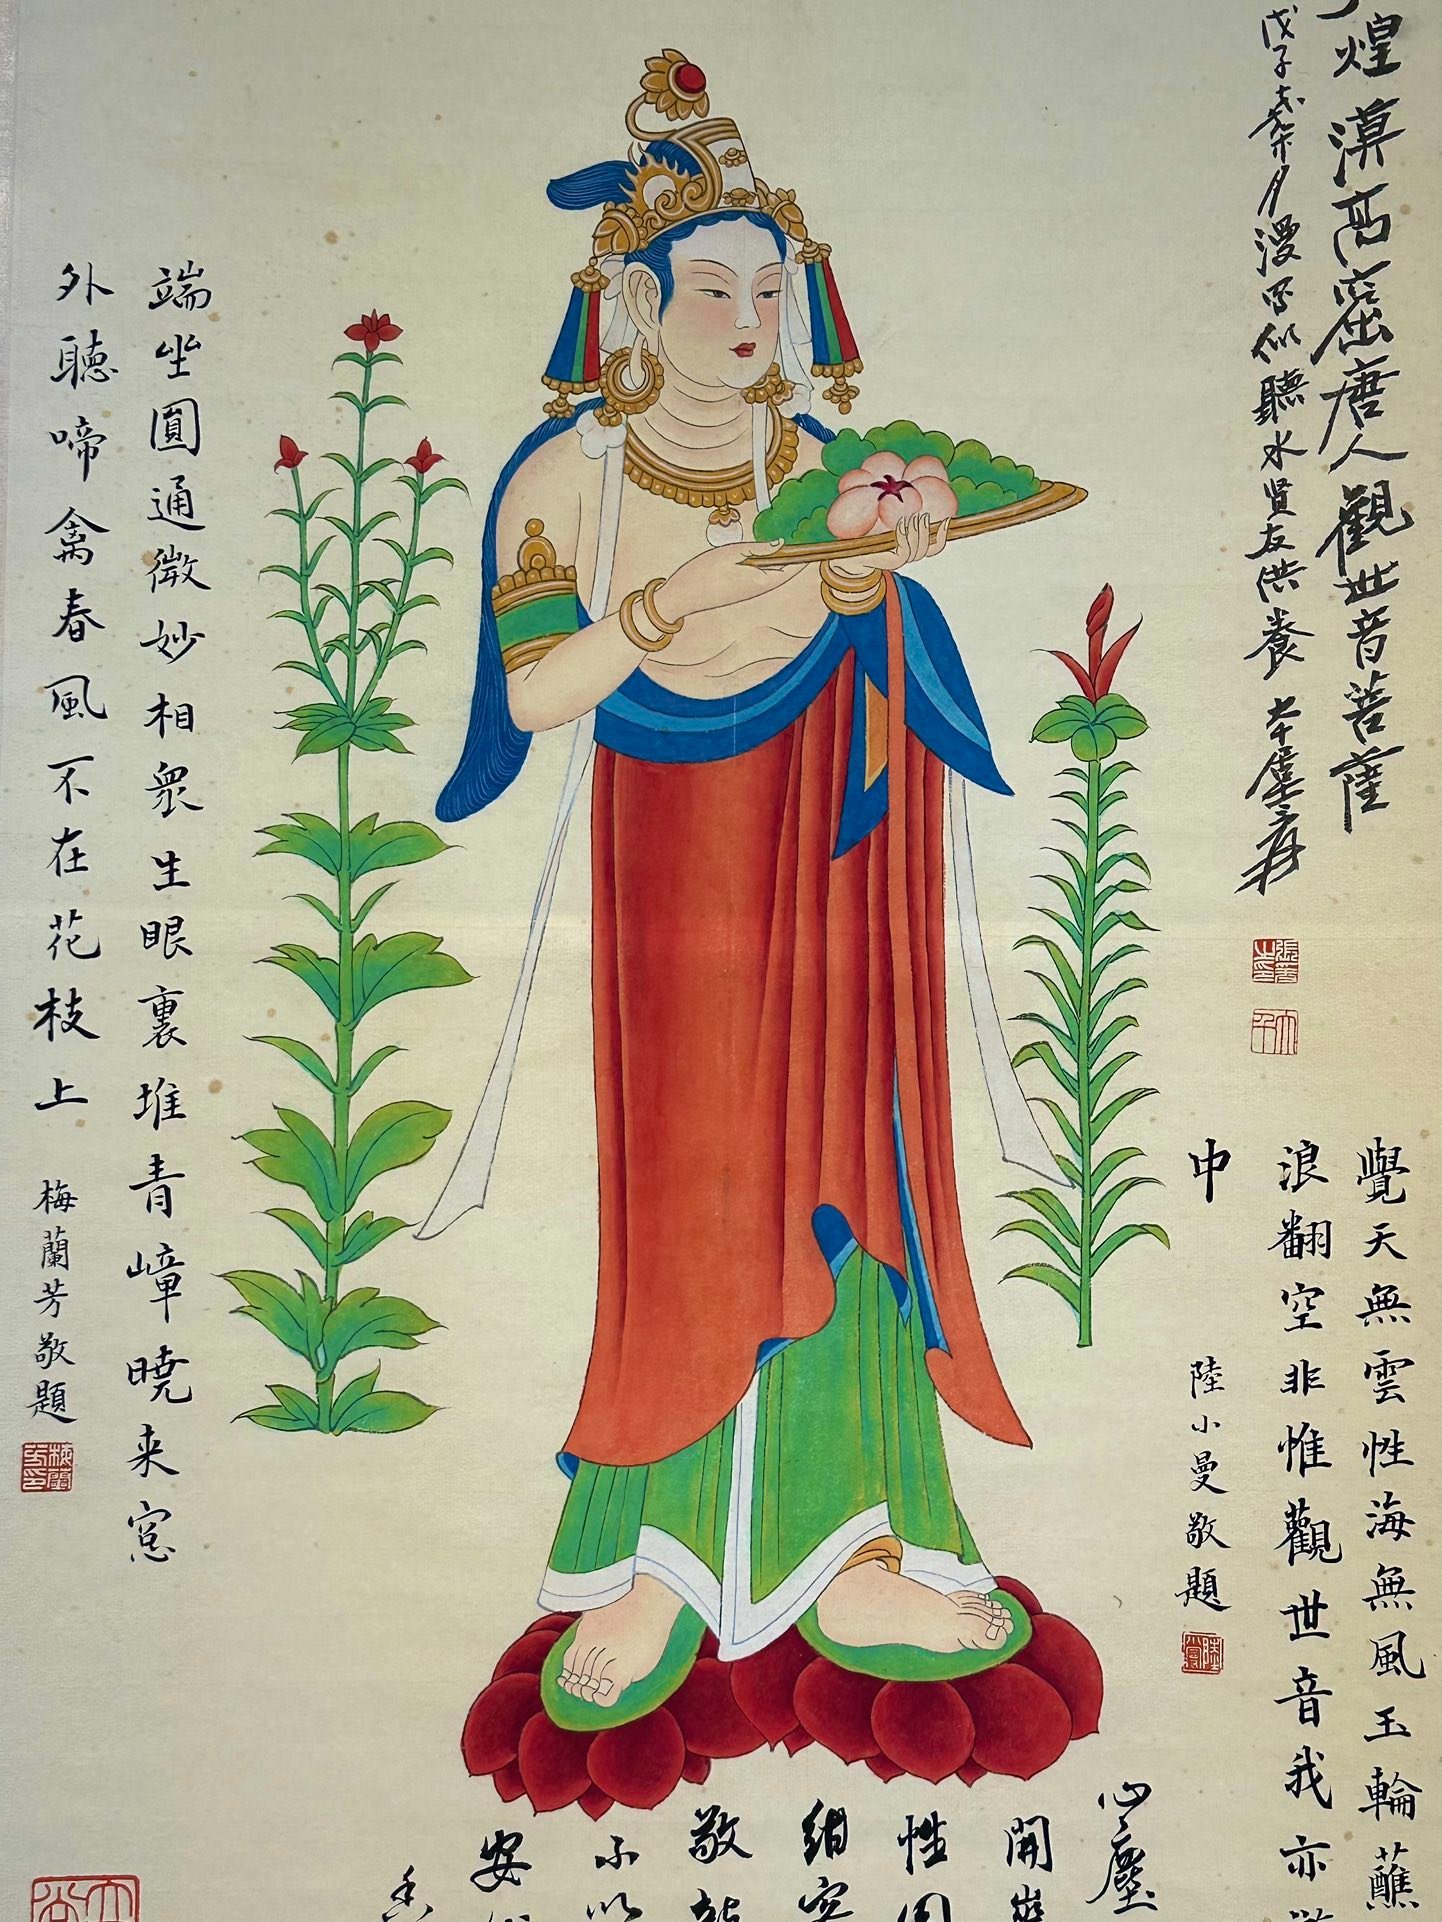 煌漠高窟唐人觀世音菩薩
戊子
月漫寫似聽水賢友供養 大千張爰
覺天無雲性海無風玉輪蘸
浪翻空非惟觀世音我亦
中
陸小曼敬題
心塵
開
性圓
紺
敬
不以
安
端坐圓通微妙相眾生眼裏堆青嶂曉来窓
外聽啼禽春風不在花枝上
梅蘭芳敬題